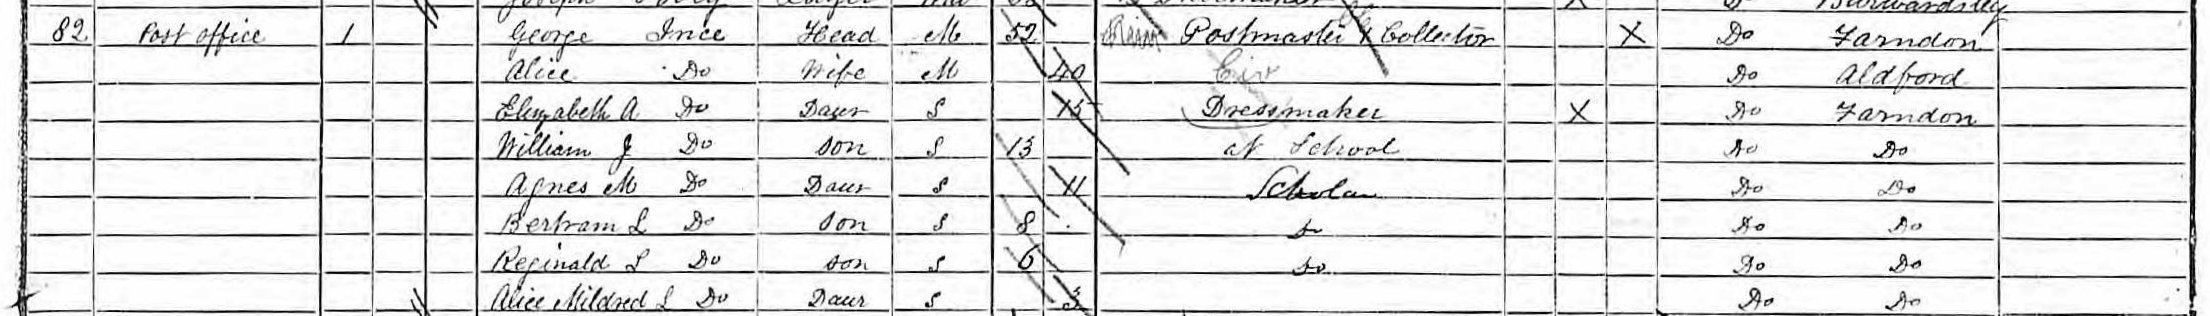 Burwardsley
82 Post office 1 George Ince Head M 52 Postmaster & Collector X Do Farndon
Alice Do Wife M 40 Civ Do Aldford
Elizabeth A Do Daur S 15 Dressmaker X Do Farndon
William J Do Son S 13 at School Do Do
Agnes M Do Daur S 11 Scholar Do Do
Bertram L Do Son S 8 Do Do Do
Reginald L Do Son S 6 Do Do Do
Alice Mildred L Do Daur S 3 Do Do